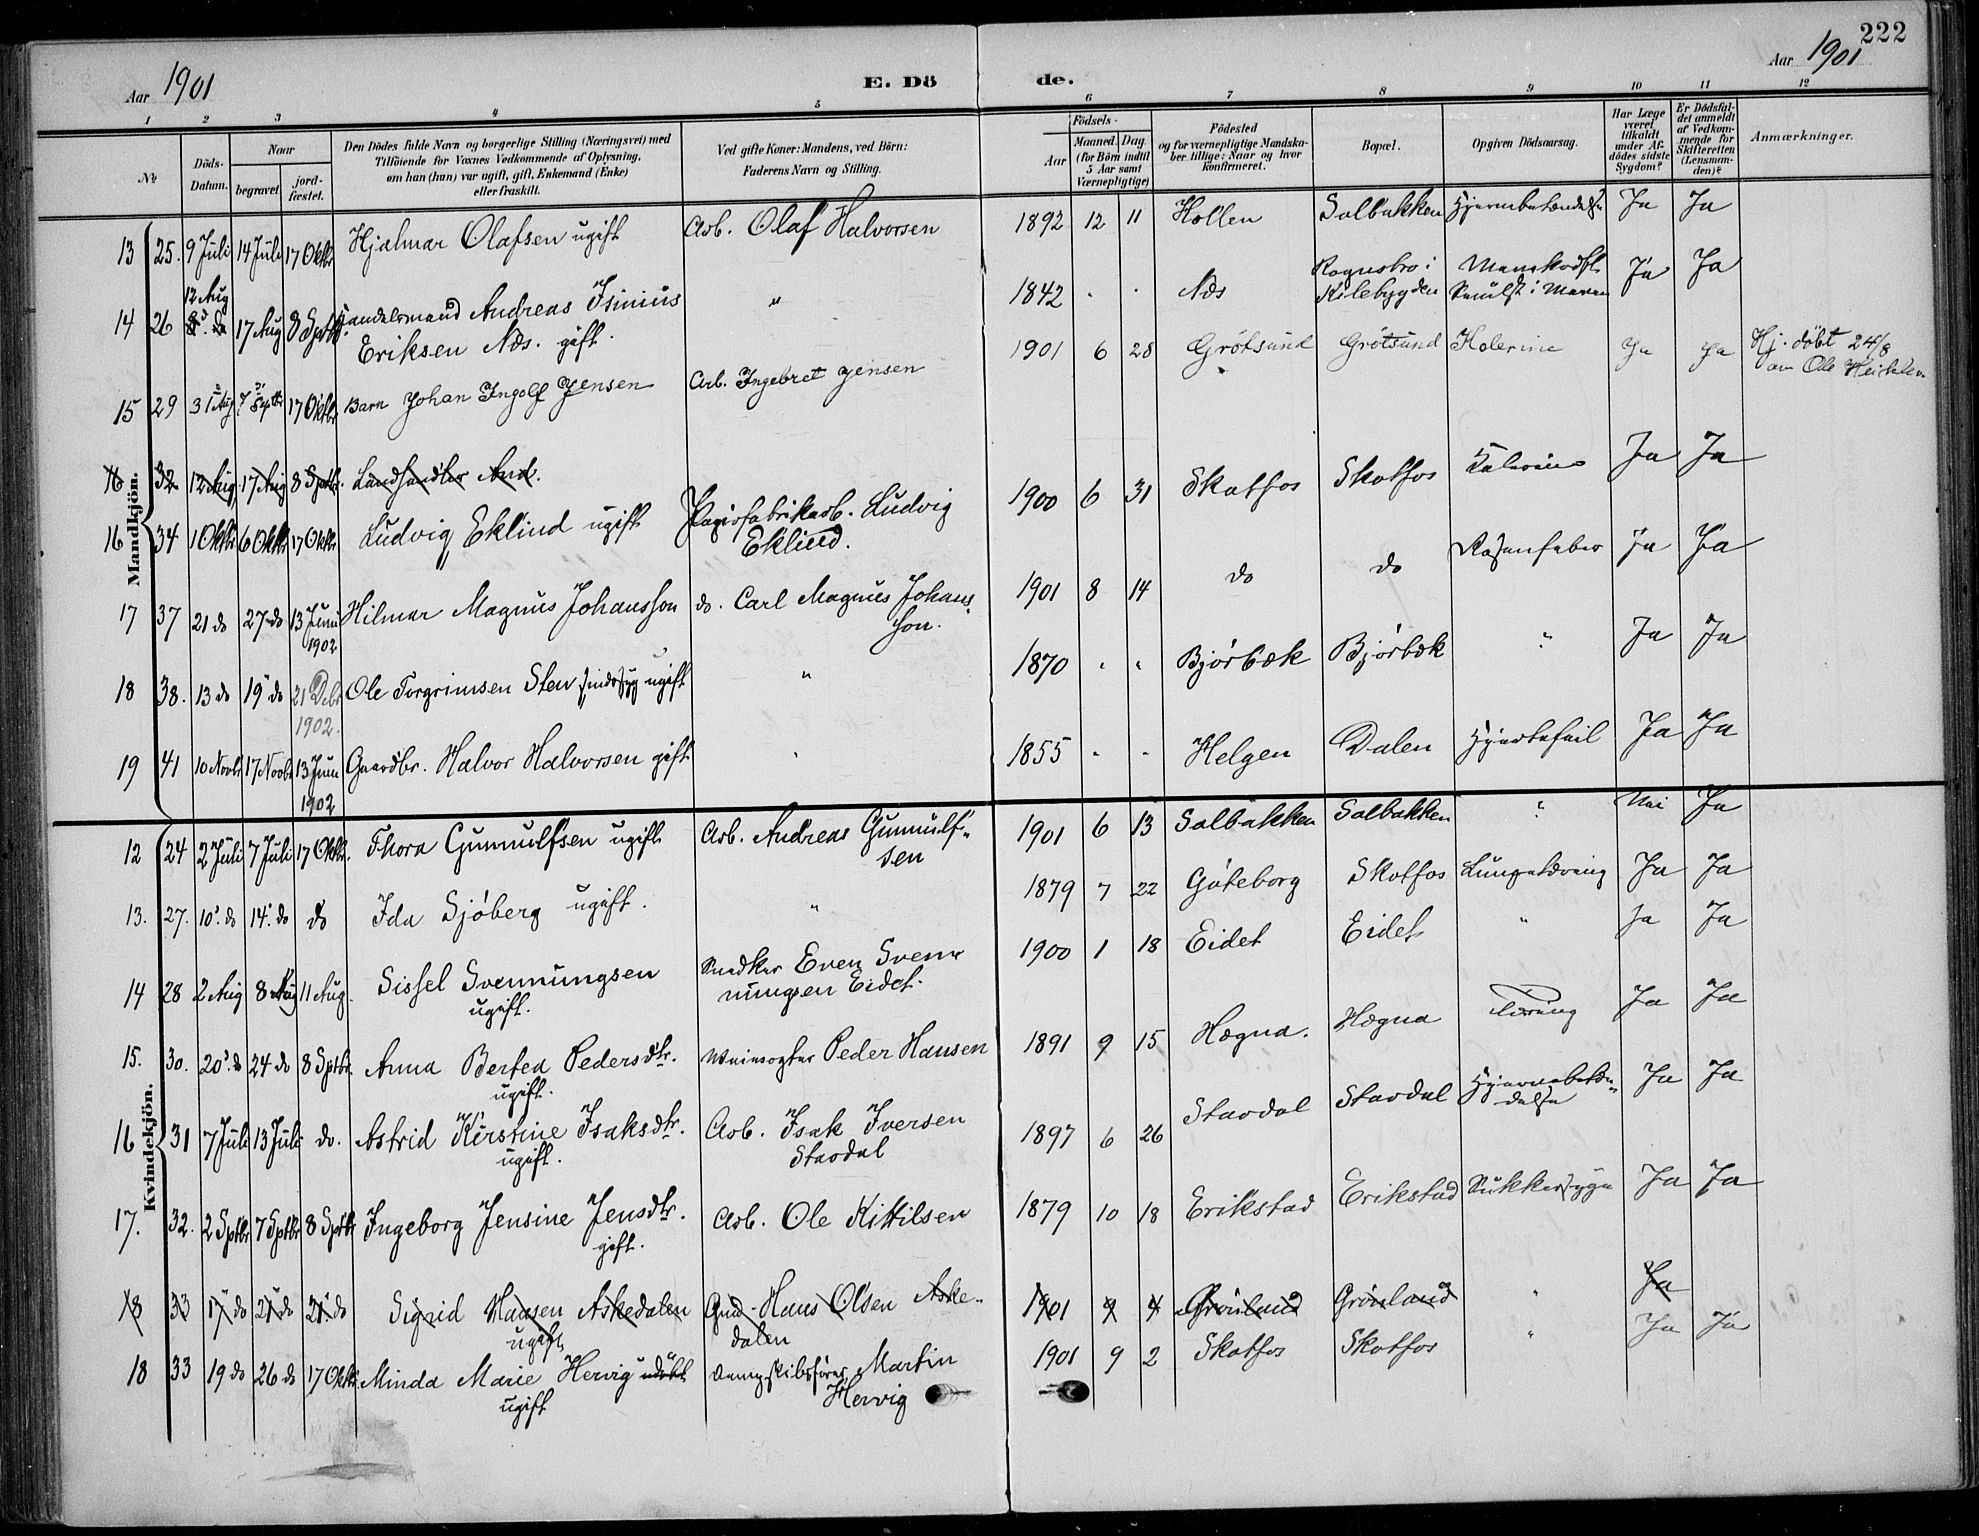 222
Aar 1901
E. Dö
de.
Aar 1901
1 2 3 4 5 6 7 8 9 10 11 12
No
Döds-Datum.
Naar
begravet
jord-fæstet.
Den Dödes fulde Navn og borgerlige Stilling (Næringsvei) med
Tilföiende for Voxnes Vedkommende af Oplysning,
om han (hun) var ugift, gift, Enkemand (Enke)
eller fraskilt.
Ved gifte Koner: Mandens, ved Börn:
Faderens Navn og Stilling.
Födsels-
Aar
Maaned. Dag.
(for Börn indtil
5 Aar samt
Værnepligtige)
Födested
og for værnepligtige Mandska-
ber tillige: Naar og hvor
konfirmeret.
Bopæl.
Opgiven Dödsaarsag.
Har Læge
været
tilkaldt
under Af-
dödes sidste
Sygdom?
Er Dödsfal-
det anmeldt
af Vedkom-
mende for
Skifteretten
(Lensman-
den)?
Anmærkninger.
Mandkjön.
13 25. 9 Juli 14 Juli 17 Oktbr Hjalmar Olafsen ugift Arb. Olaf Halvorsen 1892 12 11 Hollen Solbakken Hjernebetændelse Ja Ja
12 Aug
14 26 17 Aug 8 Sptbr. Landhandelsmand Andreas Isinius " 1842 . . Næs Rognsbro i Ja Ja
Eriksen Næs. gift. Kilebygden
15 29 31 Aug 7 Septbr 17 Oktbr Barn Johan Ingolf Jensen Arb. Ingebret Jensen 1901 6 28 Grötsund Grötsund Kolerine Ja Ja Hj. döbt 24/8
av Ole Heisholen
16 32 12 Aug 17 Aug 8 Sptbr. Landhandler And.
16 34 1 Oktbr 6 Oktbr 17 Oktbr Ludvig Eklind ugift Papirfabrikarb. Ludvig 1900 6 31 Skotfos Skotfos Kolerine Ja Ja
Eklind.
17 37 21 do 27 do 13 Juni Hilmar Magnus Johansson do. Carl Magnus Johans- 1901 8 14 do do Rosenfeber Ja Ja
1902 son.
18 38. 13 do 19 do 21 Debr Ole Torgrimsen Sten sindssyg ugift " 1870 . . Bjørbæk Bjørbæk " Ja Ja
1902.
19 41 10 Novbr 17 Novbr 13 Juni Gaardbr. Halvor Halvorsen gift " 1855 - - Helgen Dalen Hjertefeil Ja Ja
1902
Kvindekjön.
12 24 2 Juli 7 Juli 17 Oktbr. Thora Gunnulfsen ugift Arb. Andreas Gunnulf- 1901 6 13 Solbakken Solbakken " Nei Ja
sen
13. 27. 10. do 14. do do Ida Sjöberg ugift. " 1879 7 22 Göteborg Skotfos Lungetæring Ja Ja
14 28 2 Aug 8 Aug 11 Aug. Sissel Svennungsen Snedker Even Sven- 1900 1 18 Eidet Eidet " Ja Ja
ugift. nungsen Eidet.
15. 30. 20. do 24 do 8 Sptbr. Anna Bertea Pedersdtr. Peder Hansen 1891 9 15 Hægna. Hægna Tæring Ja Ja
ugift.
16 31 7 Juli 13 Juli do. Astrid Kirstine Isaksdtr. Arb. Isak Iversen 1897 6 26 Stavdal Stavdal Hjernebetæn- Ja Ja
ugift. Stavdal delse
17. 32. 2 Sptbr 7 Sptbr 8 Sptbr Ingeborg Jensine Jensdtr. Arb. Ole Kittilsen 1879 10 18 Erikstad Erikstad Sukkersyge Ja Ja
gift.
18 33 17 do 21 do 21 do Sigrid Hansen Askedalen Gmd. Hans Olsen Aske- 1901 9 4 Grönland Grönland " Ja
ugift dalen
18 33 19 do 26 do 17 Oktbr Minda Marie Hervig udöbt Dampskibsförer Martin 1901 9 2 Skotfos Skotfos " Ja Ja
ugift Hervig